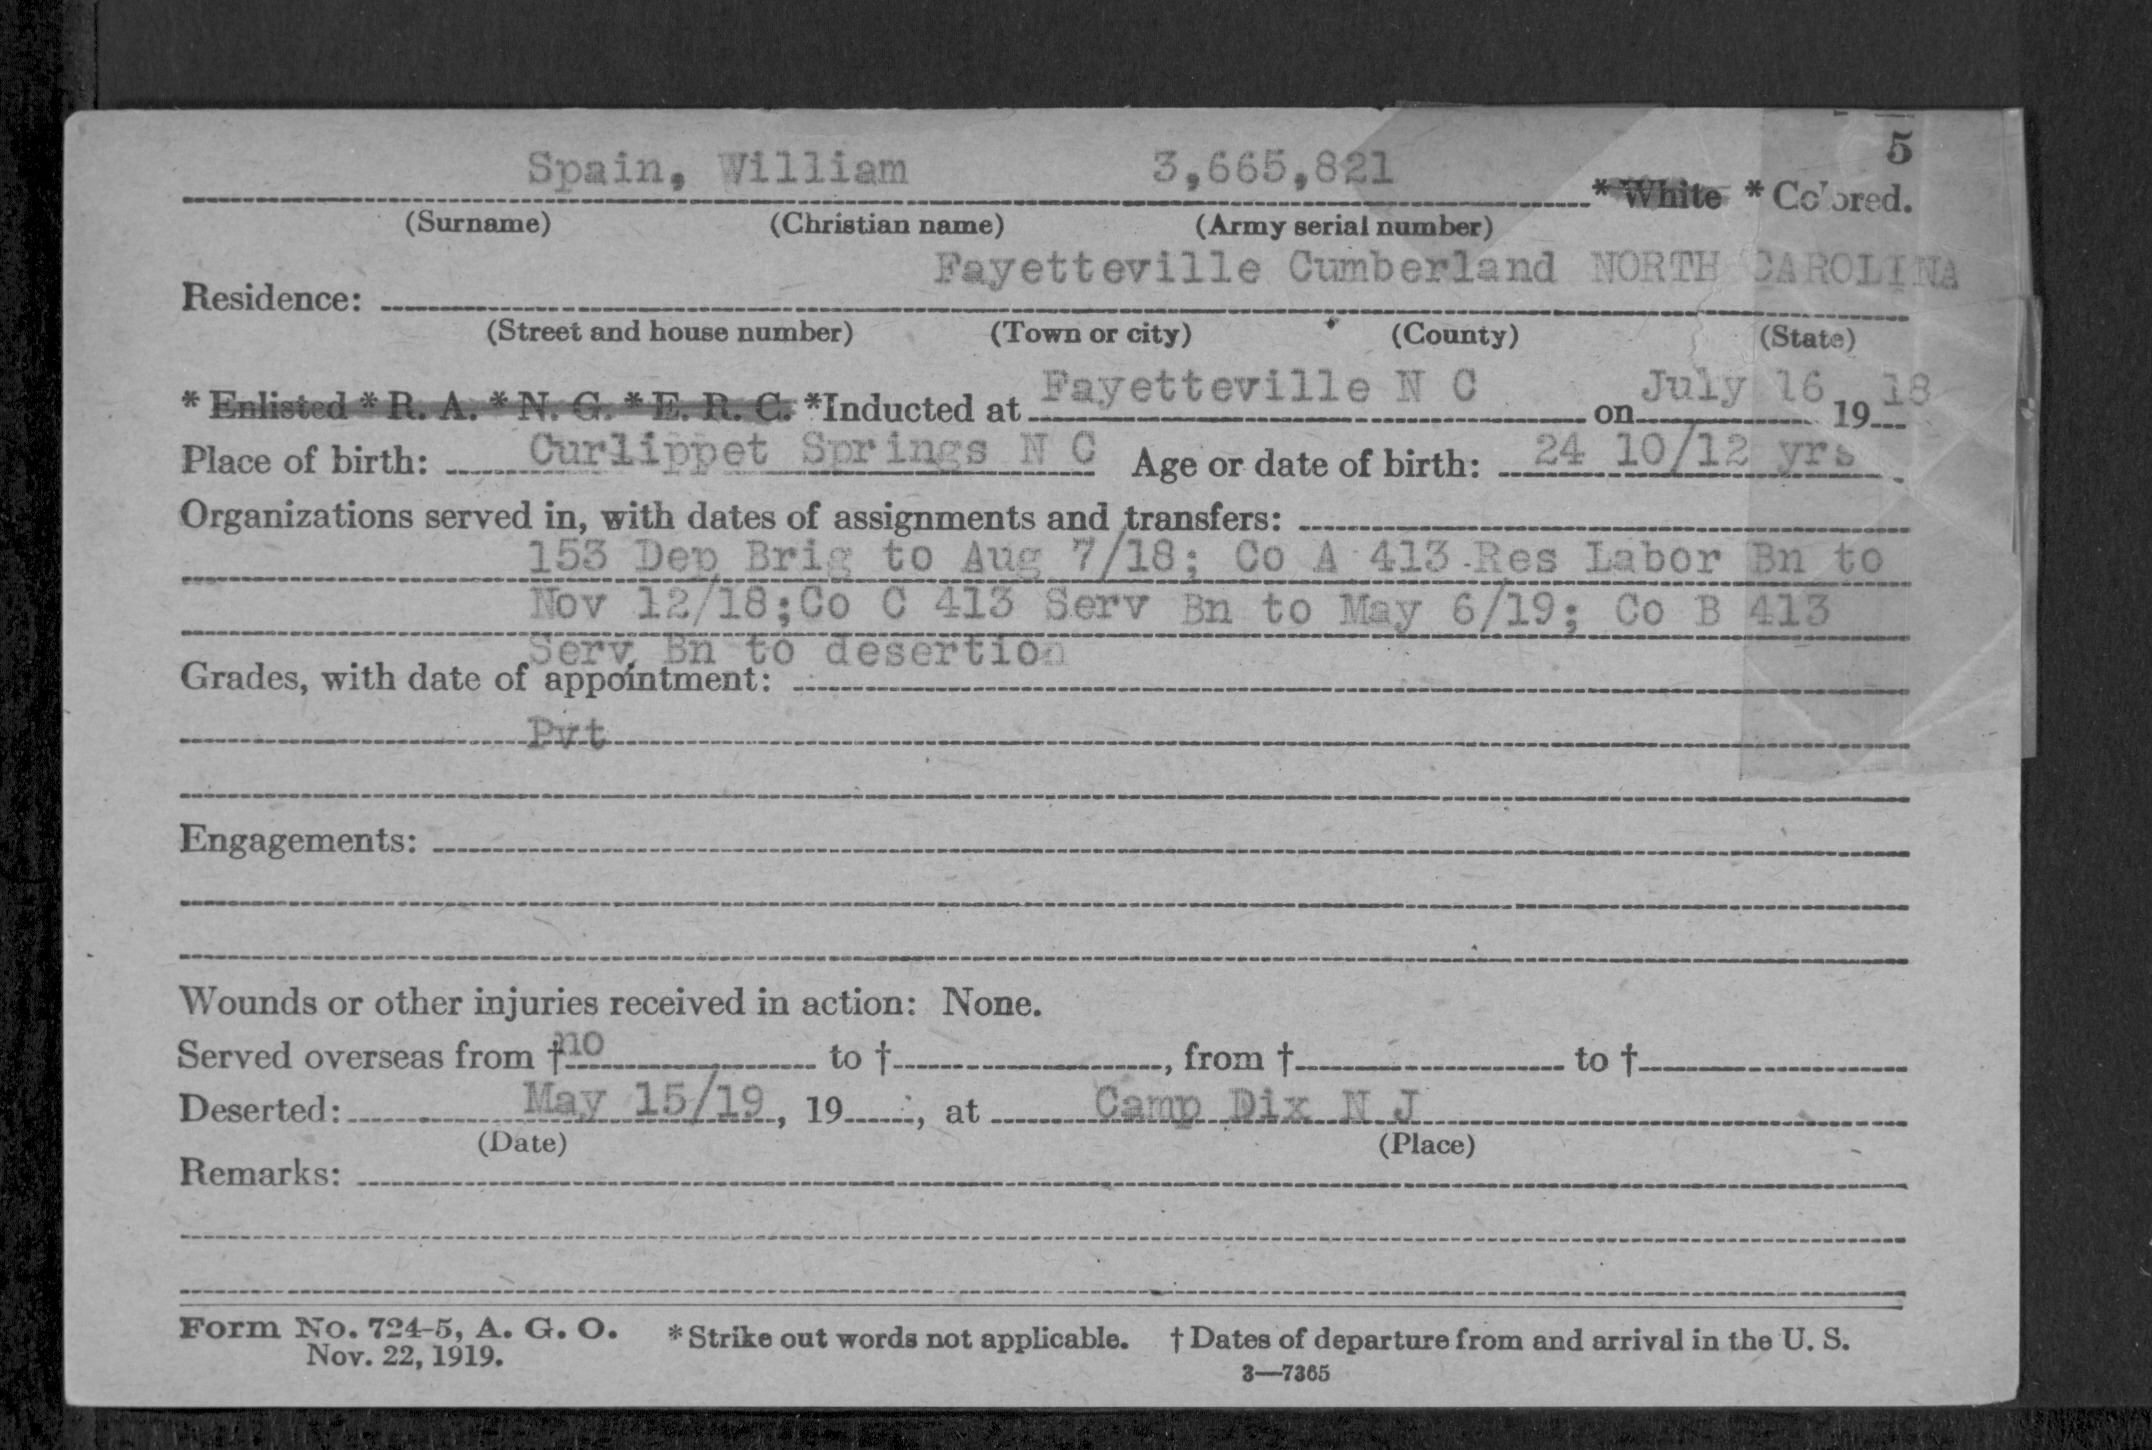 5
Spain, William 3,665,821 * White * Colored.
(Surname) (Christian name) (Army serial number)
Fayetteville Cumberland NORTH CAROLINA
Residence:
(Street and house number) (Town or city) (County) (State)
* Enlisted * R. A. * N. G. * E. R. C. *Inducted at Fayetteville N C on July 16 1918
Place of birth: Curlippet Springs N C Age or date of birth: 24 10/12 yrs
Organizations served in, with dates of assignments and transfers:
153 Dep Brig to Aug 7/18; Co A 413 Res Labor Bn to
Nov 12/18;Co C 413 Serv Bn to May 6/19; Co B 413
Serv Bn to desertion
Grades, with date of appointment:
Pvt
Engagements:
Wounds or other injuries received in action: None.
Served overseas from † no to †, from † to †
Deserted: May 15/19, 19, at Camp Dix N J
(Date) (Place)
Remarks:
Form No. 724-5, A. G. O. * Strike out words not applicable. † Dates of departure from and arrival in the U. S.
Nov. 22, 1919.
3—7365